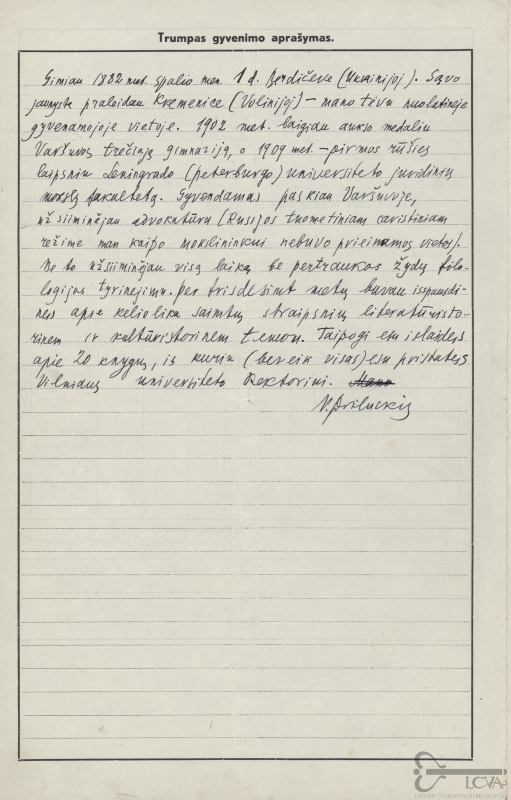 Trumpas gyvenimo aprašymas.
Gimiau 1882 met. spalio men. 1 d. Berdičeve (Ukrainijoj). Savo
jaunystę praleidau Kremenice (Volinijoj) — mano tėvų nuolatinėje
gyvenamojoje vietoje. 1902 met. baigiau aukso medaliu
Varšuvos trečiąją gimnaziją, o 1909 met. — pirmos rūšies
laipsniu Leningrado (Peterburgo) universiteto juridinių
mokslų fakultetą. Gyvendamas paskiau Varšuvoje,
užsiiminėjau advokatūra (Rusijos tuometiniam caristiniam
režime man kaipo mokslininkui nebuvo prieinamos vietos).
Be to užsiiminėjau visą laiką be pertraukos žydų filo-
logijos tyrinėjimu. Per trisdešimt metų buvau išspausdi-
nęs apie keliolika šaimtų straipsnių literatūristo-
rinem ir kultūristorinem temom. Taipogi esu išleidęs
apie 20 knygų, iš kurių (beveik visas) esu pristatęs
Vilniaus universiteto Rektoriui. Mano
N. Priluckis
LCVA